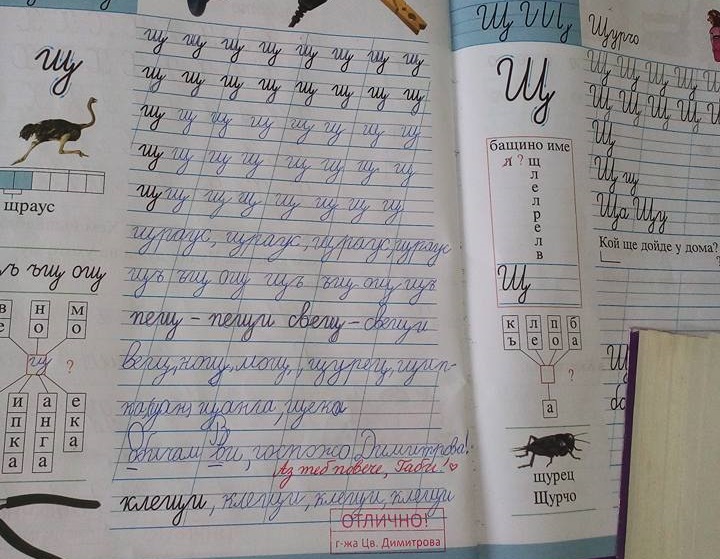 щ
щраус
щъ ъщ ощ
в н м
е о о
щ ?
и а е
п н к
к г а
а а
щ щ щ щ щ щ щ щ
щ щ щ щ щ щ щ щ
щ щ щ щ щ щ щ щ
щ щ щ щ щ щ щ
щ щ щ щ щ щ щ щ
щраус, щраус, щраус, щраус
щъ ъщ ощ щъ ъщ ощ щъ
пещ - пещи свещ - свещи
вещ, нощ, мощ, щурец, щип-
ка, щанга, щека
Обичам Ви, госпожо Димитрова!
Аз теб повече, Габи!
клещи, клещи, клещи, клещи
ОТЛИЧНО!
г-жа Цв. Димитрова
Щ
Щ
бащино име
л ? щ
л
е
л
р
е
л
в
Щ
к л п б
ъ е о а
?
а
щурец
Щурчо
Щурчо
Щ Щ Щ Щ Щ
Щ Щ Щ Щ Щ
Щ
Щ щ
Ща Щу
Кой ще дойде у дома?